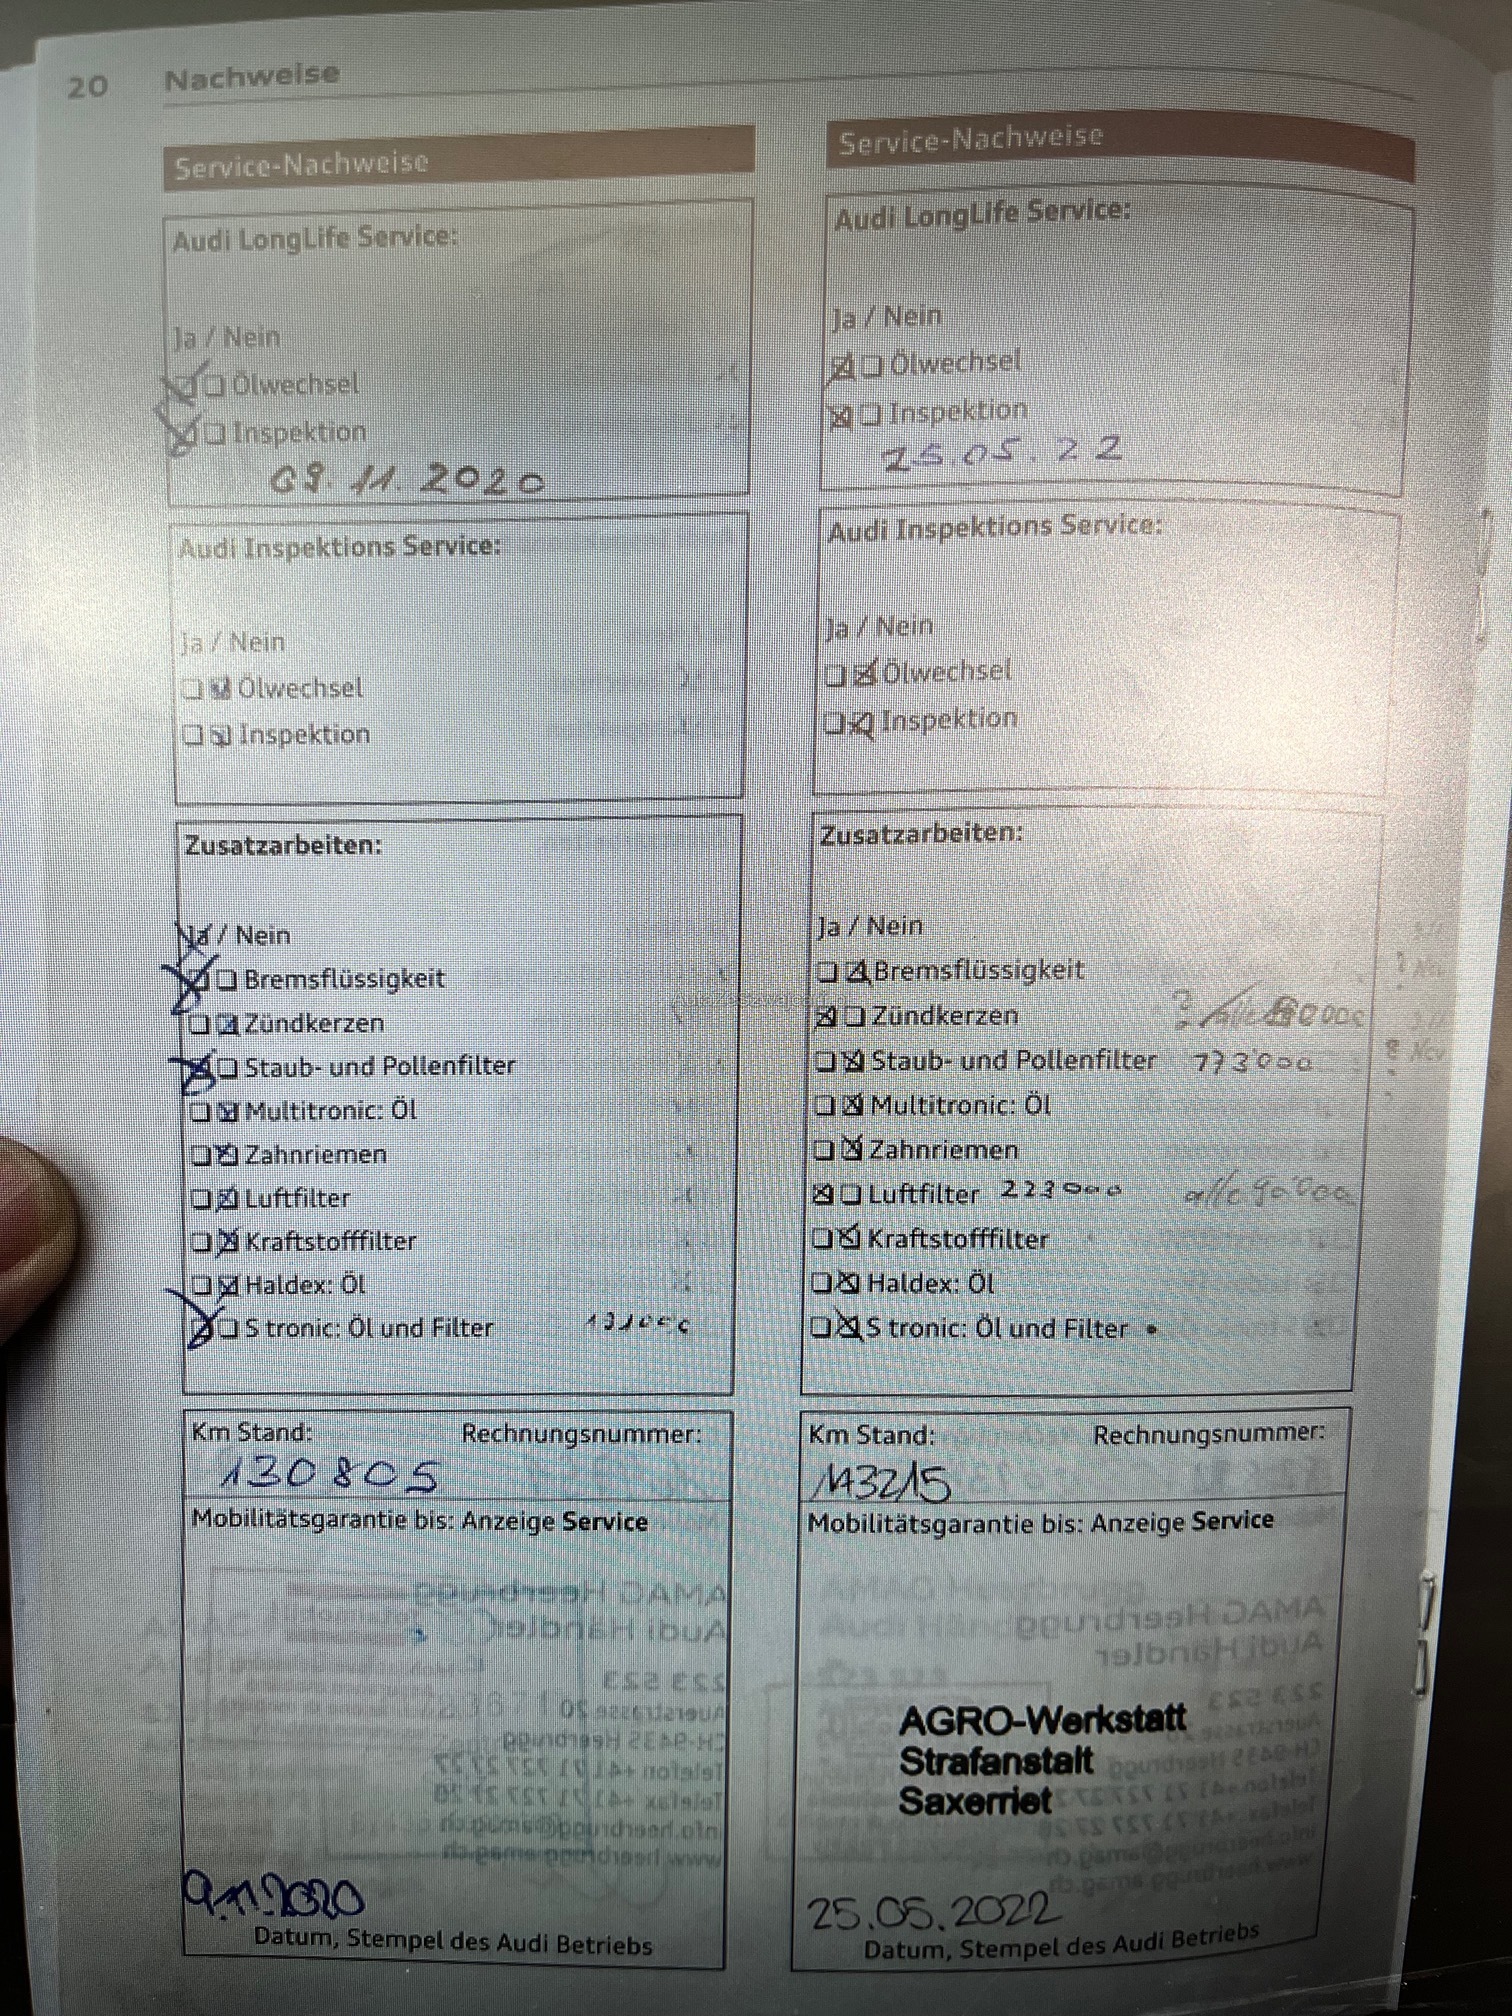 20 Nachweise
Service-Nachweise
Audi LongLife Service:
Ja / Nein
Ölwechsel
Inspektion
09.11.2020
Audi Inspektions Service:
Ja / Nein
Ölwechsel
Inspektion
Zusatzarbeiten:
Ja / Nein
Bremsflüssigkeit
Zündkerzen
Staub- und Pollenfilter
Multitronic: Öl
Zahnriemen
Luftfilter
Kraftstofffilter
Haldex: Öl
S tronic: Öl und Filter
Km Stand: Rechnungsnummer:
130805
Mobilitätsgarantie bis: Anzeige Service
9.11.2020
Datum, Stempel des Audi Betriebs
Service-Nachweise
Audi LongLife Service:
Ja / Nein
Ölwechsel
Inspektion
25.05.22
Audi Inspektions Service:
Ja / Nein
Ölwechsel
Inspektion
Zusatzarbeiten:
Ja / Nein
Bremsflüssigkeit
Zündkerzen
Staub- und Pollenfilter 173'000
Multitronic: Öl
Zahnriemen
Luftfilter 223000 alle 90'000
Kraftstofffilter
Haldex: Öl
S tronic: Öl und Filter
Km Stand: Rechnungsnummer:
173215
Mobilitätsgarantie bis: Anzeige Service
AGRO-Werkstatt
Strafanstalt
Saxerriet
25.05.2022
Datum, Stempel des Audi Betriebs